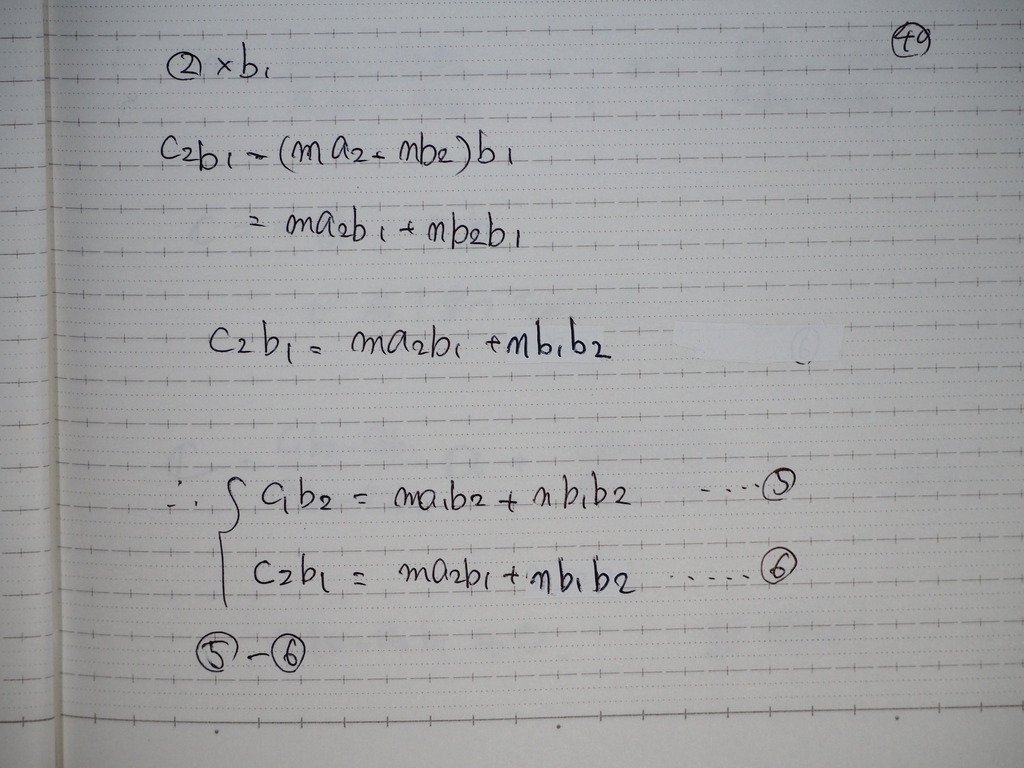 ㊾
② × b₁
C₂b₁ = (ma₂ + nb₂)b₁
= ma₂b₁ + nb₂b₁
C₂b₁ = ma₂b₁ + nb₁b₂
∴ { C₁b₂ = ma₁b₂ + nb₁b₂ ····⑤
C₂b₁ = ma₂b₁ + nb₁b₂ ·····⑥
⑤ - ⑥